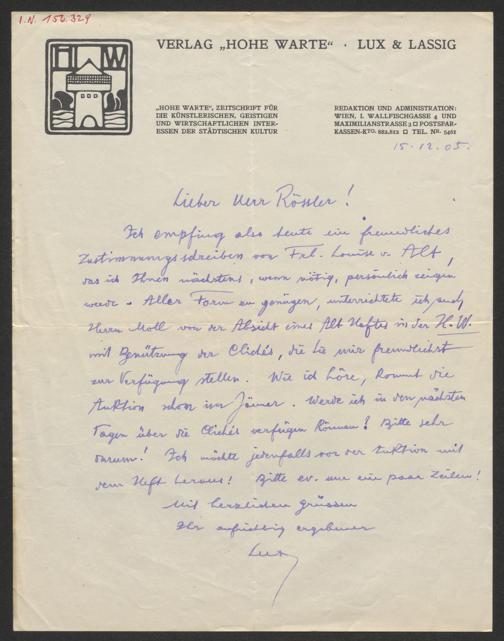 I.N. 156.329
HW
VERLAG „HOHE WARTE“ · LUX & LASSIG
„HOHE WARTE“, ZEITSCHRIFT FÜR
DIE KÜNSTLERISCHEN, GEISTIGEN
UND WIRTSCHAFTLICHEN INTER-
ESSEN DER STÄDTISCHEN KULTUR
REDAKTION UND ADMINISTRATION:
WIEN, I. WALLFISCHGASSE 4 UND
MAXIMILIANSTRASSE 3 □ POSTSPAR-
KASSEN-KTO. 882.812 □ TEL. NR. 5462
15.12.05.
Lieber Herr Rössler!
Ich empfing also heute ein freundliches
Zustimmungsschreiben von Frl. Louise v. Alt,
das ich Ihnen nächstens, wenn nötig, persönlich zeigen
werde. Aller Form zu genügen, unterrichtete ich auch
Herrn Moll von der Absicht eines Alt Heftes in der H. W.
mit Benützung der Clichés, die Sie mir freundlichst
zur Verfügung stellen. Wie ich höre, kommt die
Auktion schon im Jänner. Werde ich in den nächsten
Tagen über die Clichés verfügen können? Bitte sehr
darum! Ich möchte jedenfalls vor der Auktion mit
dem Heft heraus! Bitte ev. um ein paar Zeilen!
Mit herzlichen Grüssen
Ihr aufrichtig ergebener
Lux